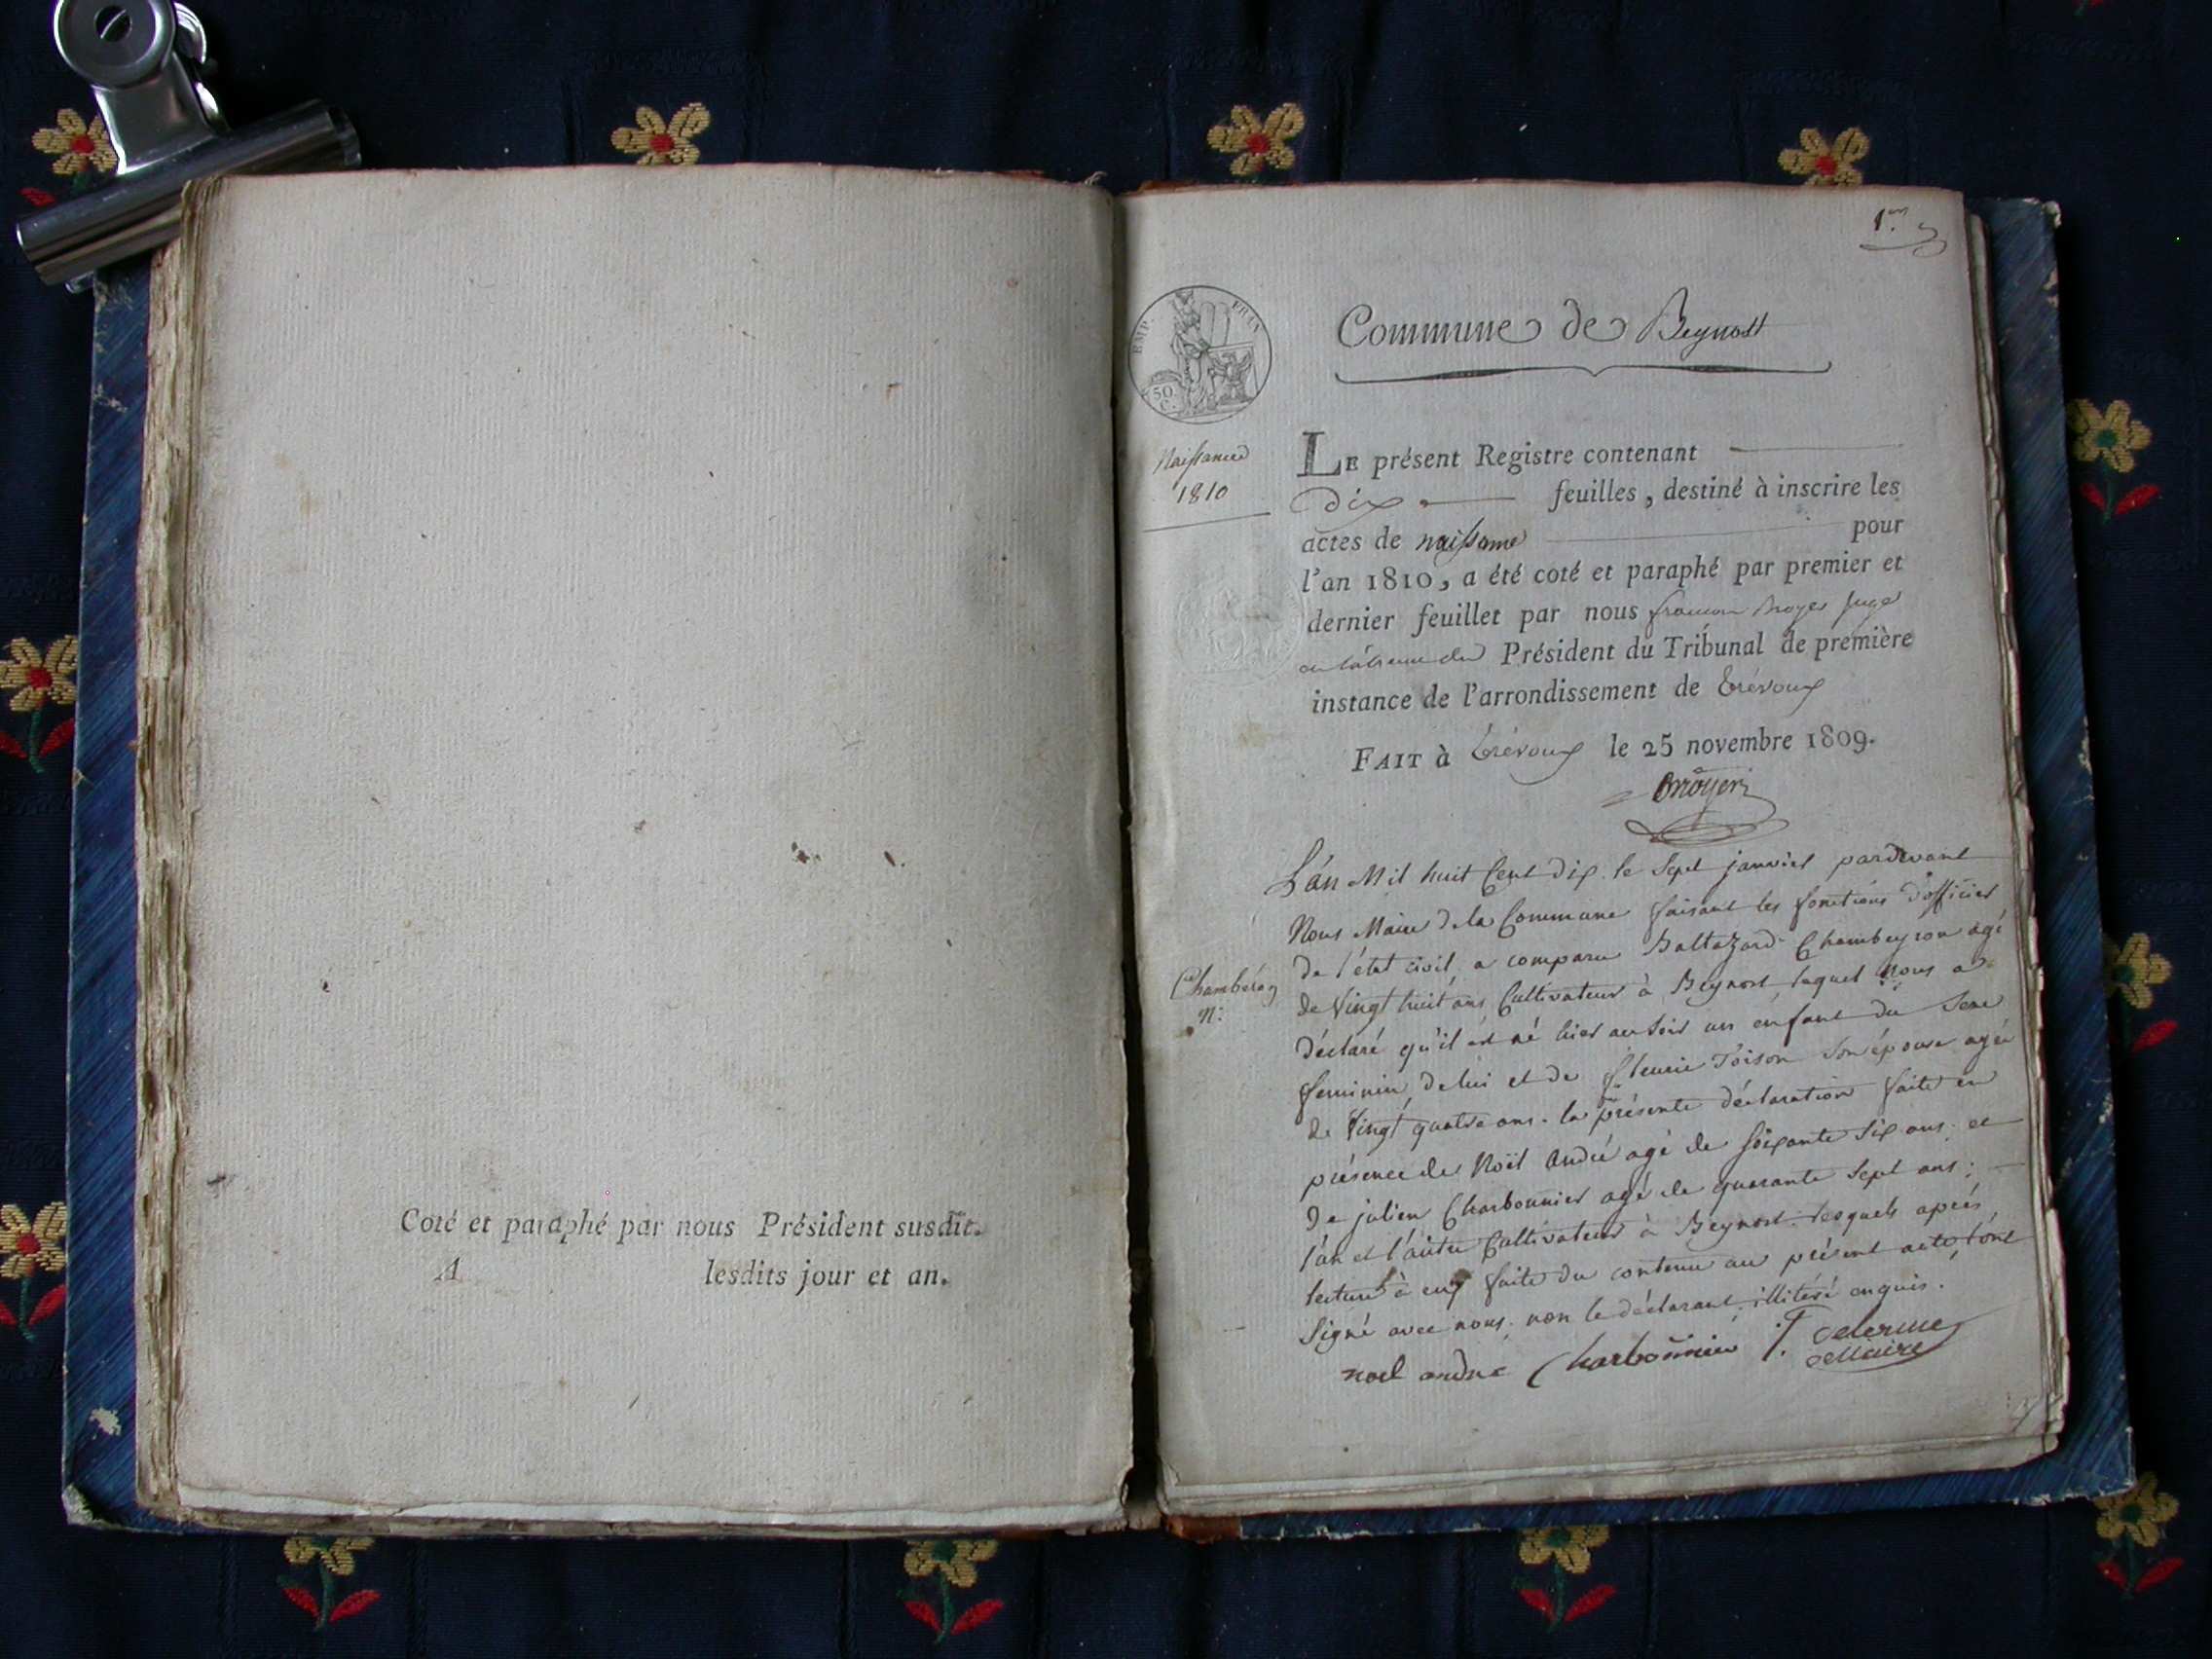 Coté et paraphé par nous Président susdit.
A lesdits jour et an.
1.er
EMP. FRAN
50
C.
Commune de Beynost
Naissance
1810
LE présent Registre contenant
dix feuilles, destiné à inscrire les
actes de naissance pour
l'an 1810, a été coté et paraphé par premier et
dernier feuillet par nous juge
Président du Tribunal de première
instance de l'arrondissement de Trévoux
FAIT à Trévoux le 25 novembre 1809.
L'an Mil huit Cent dix le Sept janvier pardevant
Nous Maire de la Commune faisant les fonctions d'officier
de l'état civil, a comparu Baltazard Chambeyron agé
de Vingt huit ans Cultivateur à Beynost, lequel nous a
déclaré qu'il est né hier au soir un enfant du Sexe
feminin, de lui et de fleurie Toison Son épouse agée
de Vingt quatre ans. la présente déclaration faite en
présence de Noël André agé de soixante Six ans et
De julien Charbonnier agé de quarante Sept ans;
l'un et l'autre Cultivateurs à Beynost. lesquels après
lecture à eux faite du contenu au présent acte, l'ont
Signé avec nous, non le déclarant, illitéré enquis.
Chambéron
N:
noel andre Charbonnier